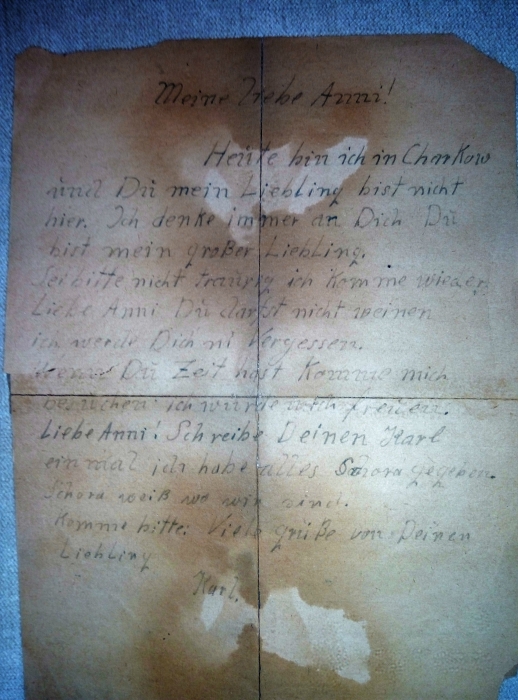 Meine liebe Anni!
Heute bin ich in Charkow
und Du mein Liebling bist nicht
hier. Ich denke immer an Dich Du
bist mein großer Liebling.
Sei bitte nicht traurig ich Komme wieder
Liebe Anni Du darfst nicht weinen
ich werde Dich ni Vergessen.
wenn Du Zeit hast Komme mich
besuchen ich würde mich freuen.
Liebe Anni! Schreibe Deinen Karl
einmal ich habe alles Schora gegeben.
Schora weiß wo wir sind.
Komme bitte. Viele grüße von Deinen
Liebling
Karl.